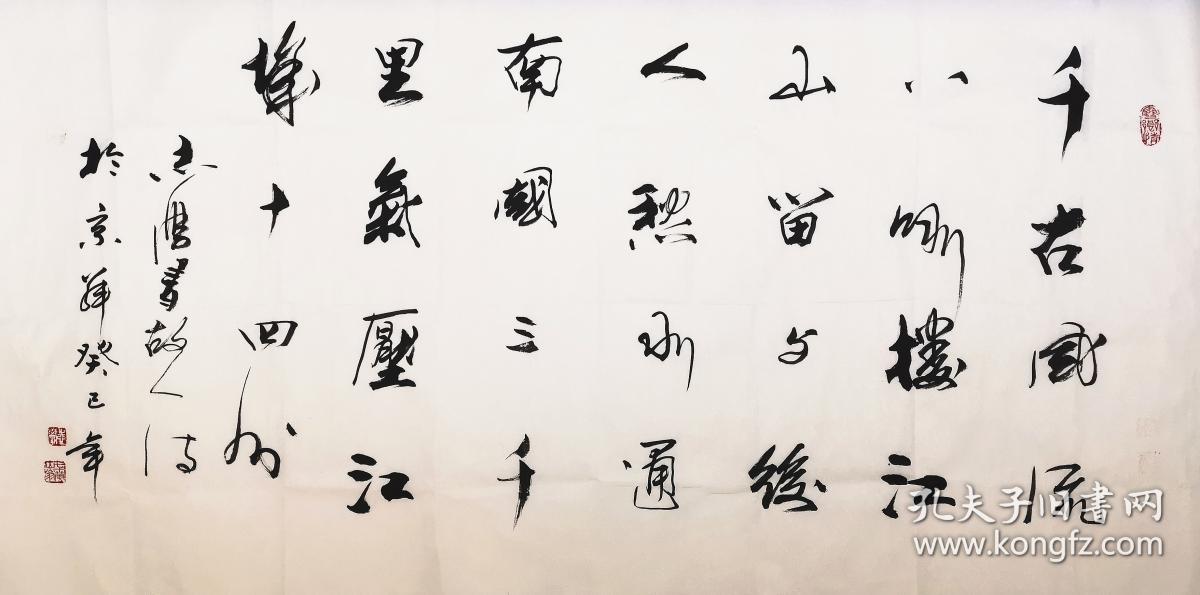 千古風流
八詠樓江
山留与後
人愁水通
南國三千
里氣壓江
城十四州
志書故人诗
於京華癸巳年
孔夫子旧书网
www.kongfz.com